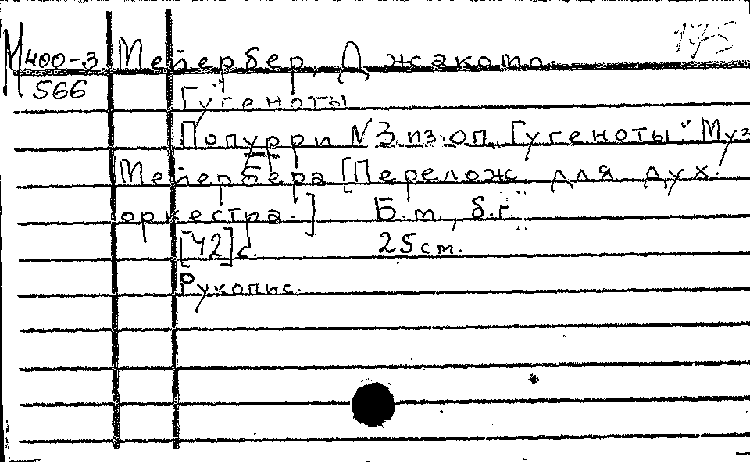 М400-3 Мейербер, Джакомо 175
566
"Гугеноты"
Попурри №3 из оп. "Гугеноты" Муз.
Мейербера [Перелож. для дух.
оркестра.] Б.м., б.г.
[42] с. 25 см.
Рукопис.